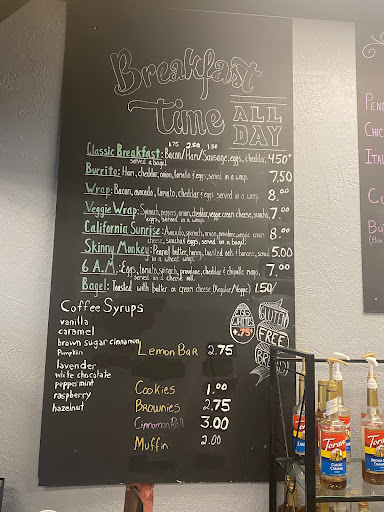 Breakfast
Time ALL
DAY
.75 2.50 1.50
Classic Breakfast: Bacon/Ham/Sausage, eggs, cheddar, 4.50+
served on a bagel
Burrito: Ham, cheddar, onion, tomato & eggs, served in a wrap. 7.50
Wrap: Bacon, avocado, tomato, cheddar & eggs served in a wrap. 8.00
Veggie Wrap: Spinach, peppers, onion, cheddar, veggie cream cheese, sriracha, 7.00
eggs, served in a wrap.
California Sunrise: Avocado, spinach, onion, provolone, veggie cream 8.00
cheese, sriracha & eggs served on a bagel.
Skinny Monkey: Peanut butter, honey, toasted oats & banana, served 5.00
in a wheat wrap.
6 A.M.: Eggs, tomato, spinach, provolone, cheddar & chipotle mayo, 7.00
served on a cheese roll.
Bagel: Toasted with butter or cream cheese (Regular/Veggie) 1.50/
Coffee Syrups
vanilla
caramel
brown sugar cinnamon
Pumpkin
lavender
white chocolate
peppermint
raspberry
hazelnut
EGG
WHITES
+.75¢
GLUTEN
FREE
Lemon Bar 2.75
Cookies 1.00
Brownies 2.75
Cinnamon Roll 3.00
Muffin 2.00
Pen
Chic
Ita
Cu
Bu
(Boo
Torani
Torani